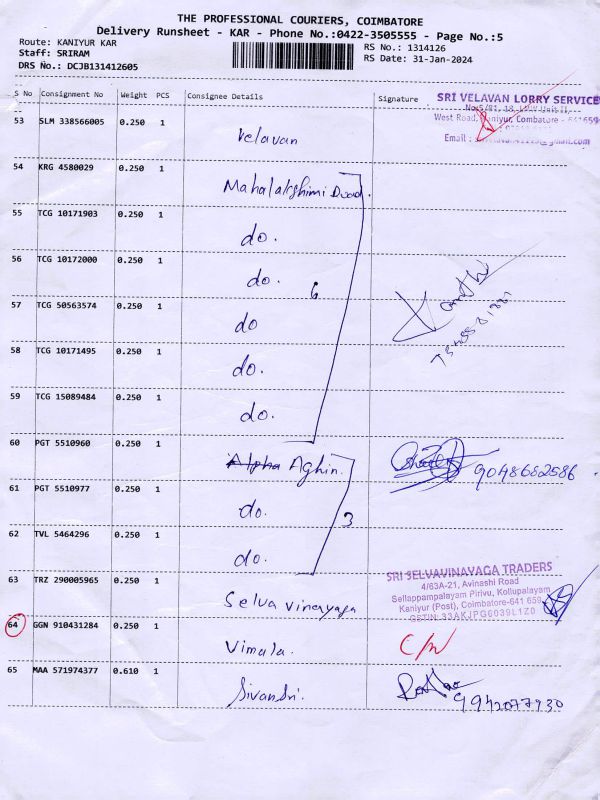 THE PROFESSIONAL COURIERS, COIMBATORE
Delivery Runsheet - KAR - Phone No.:0422-3505555 - Page No.:5
Route: KANIYUR KAR
Staff: SRIRAM
DRS No.: DCJB131412605
RS No.: 1314126
RS Date: 31-Jan-2024
S No Consignment No Weight PCS Consignee Details Signature
SRI VELAVAN LORRY SERVICE
West Road, Kaniyur, Coimbatore - 641659
Email :
53 SLM 338566005 0.250 1 Velavan
54 KRG 4580029 0.250 1 Mahalakshimi
55 TCG 10171903 0.250 1 do.
56 TCG 10172000 0.250 1 do.
6
57 TCG 50563574 0.250 1 do
58 TCG 10171495 0.250 1 do.
59 TCG 15089484 0.250 1 do.
60 PGT 5510960 0.250 1 Alpha Aghin. 9048682586
61 PGT 5510977 0.250 1 do.
3
62 TVL 5464296 0.250 1 do.
63 TRZ 290005965 0.250 1 Selva Vinayaga
SRI SELVAVINAYAGA TRADERS
4/63A-21, Avinashi Road
Sellappampalayam Pirivu, Kollupalayam
Kaniyur (Post), Coimbatore-641 659
GSTIN: 33AKJPG6039L1Z0
64 GGN 910431284 0.250 1 Vimala. C/N
65 MAA 571974377 0.610 1 Sivansri. 9942077930